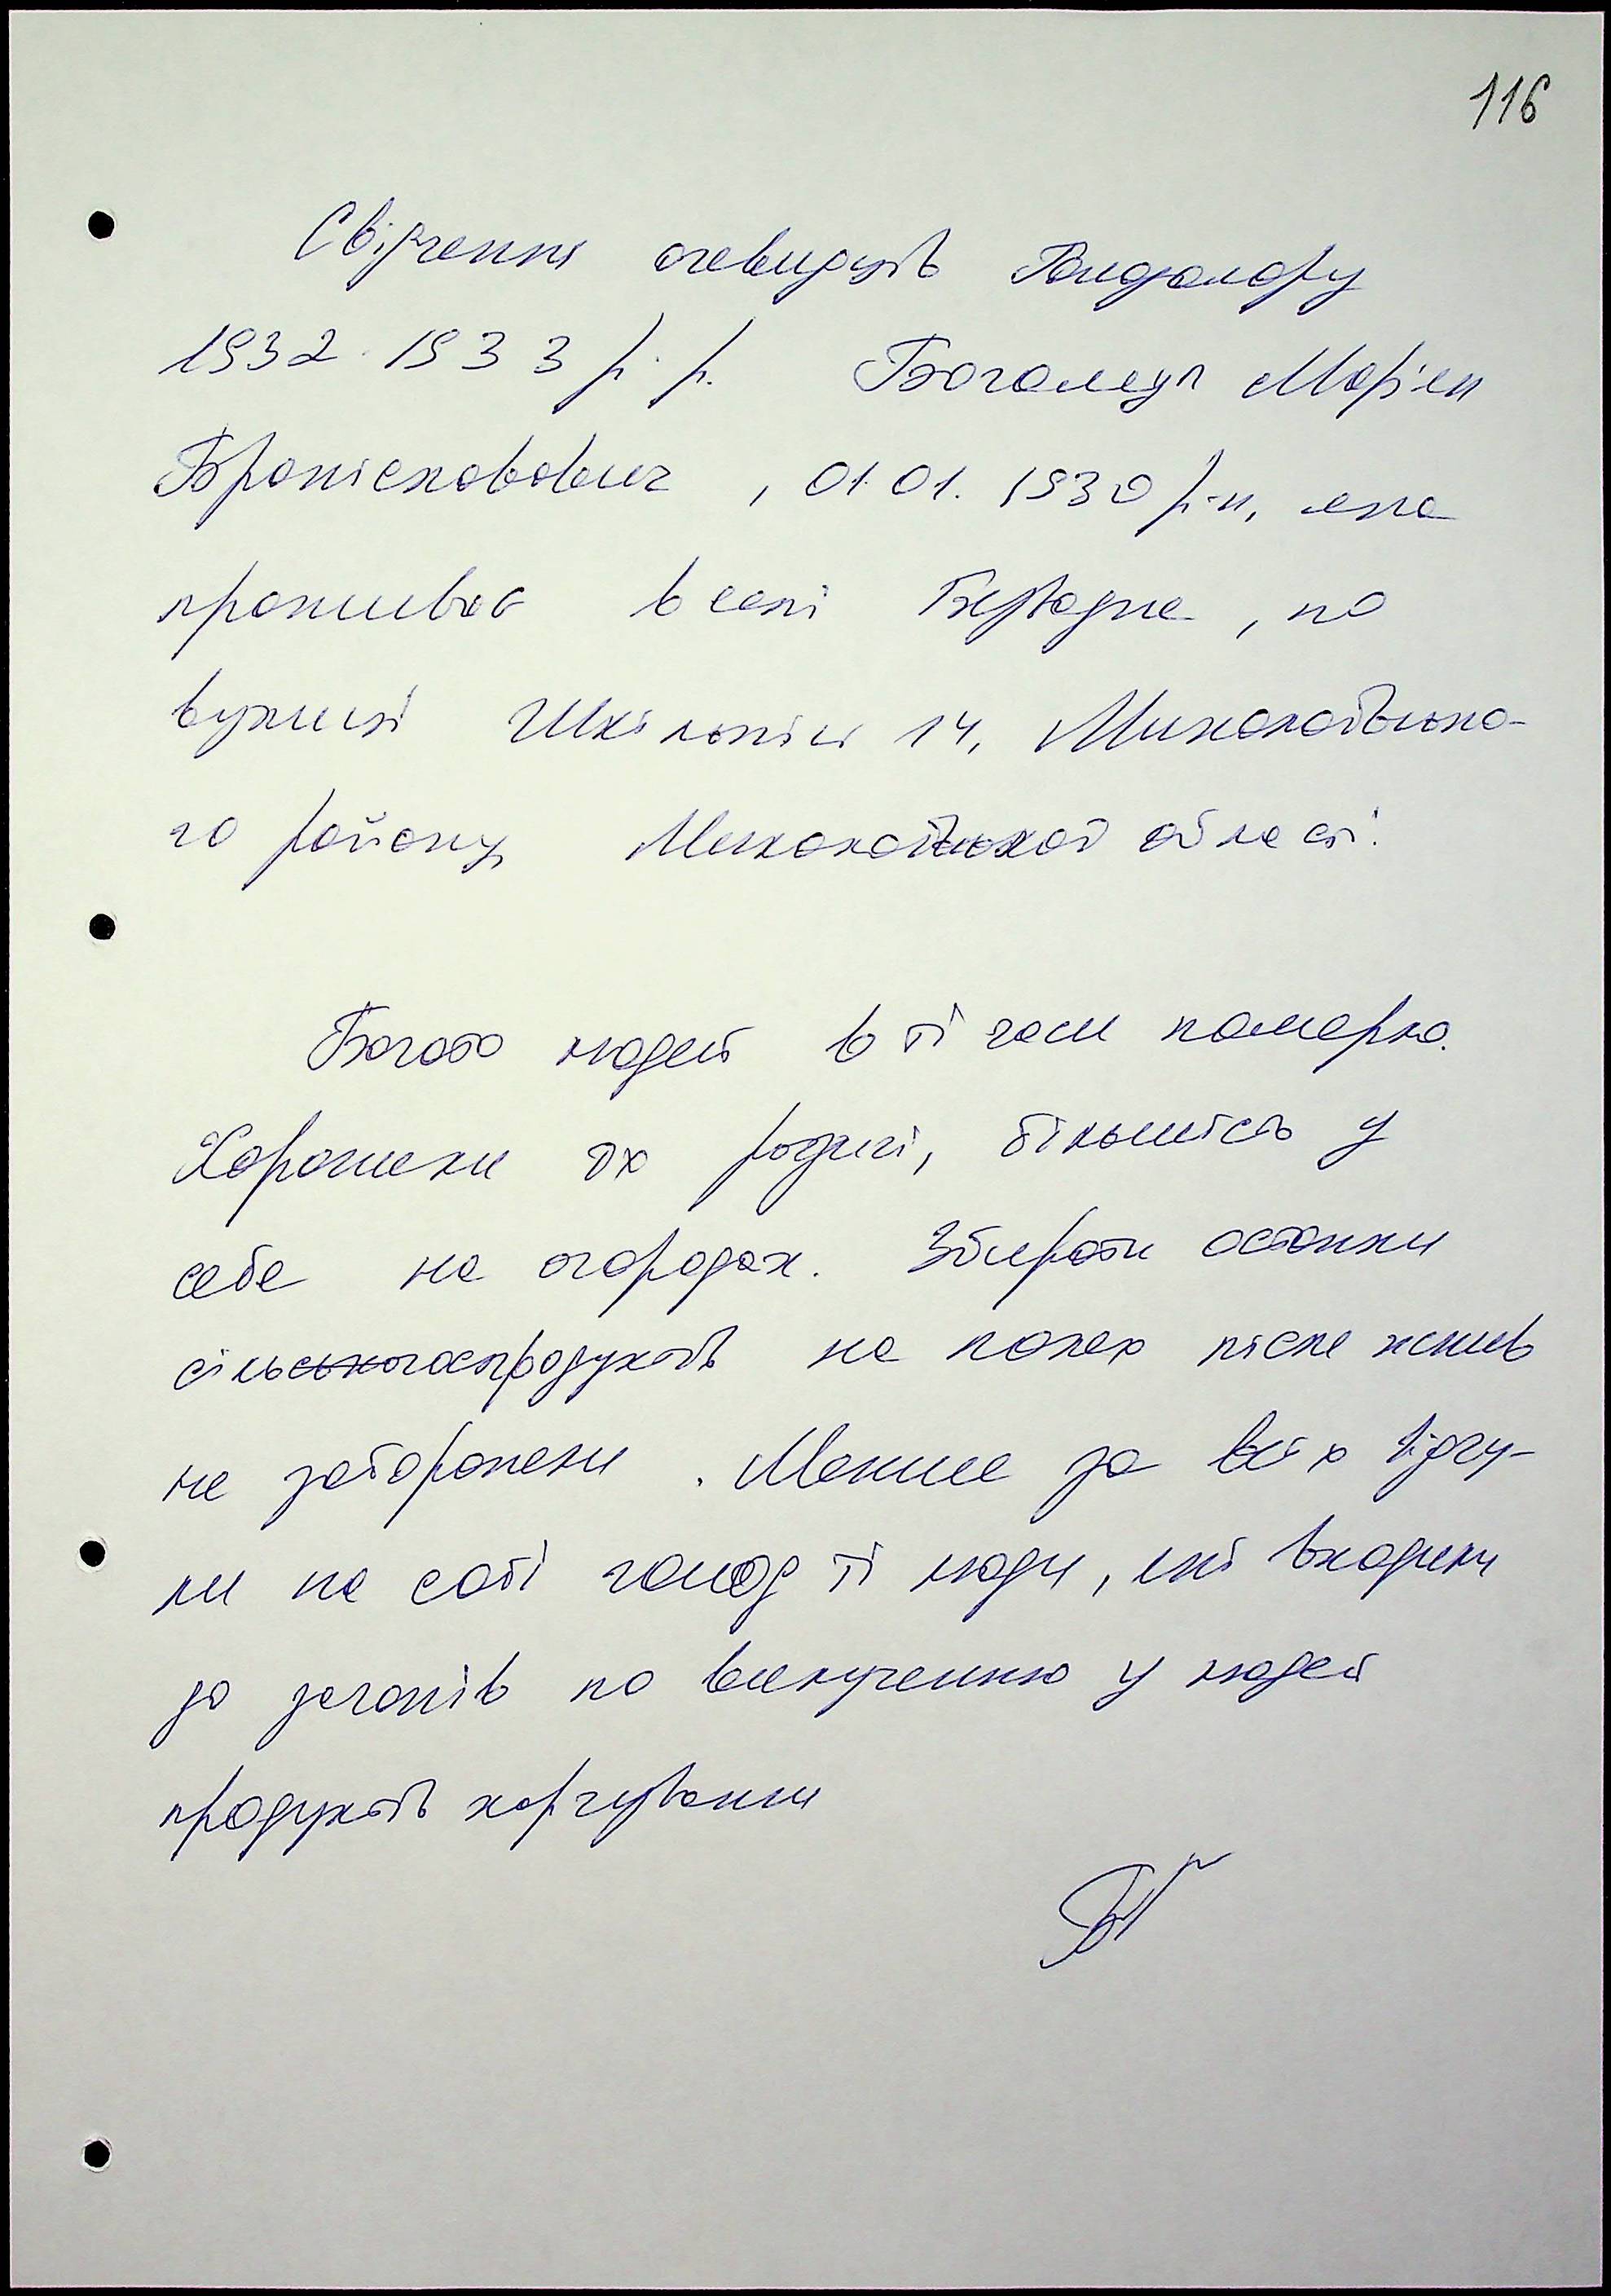 116
Свідчення очевидців Голодомору
1932-1933 р.р. Богомаз Мар'ян
Броніславович, 01.01.1930 р.н, яка
проживає в селі Безводне, по
вулиці Шкільній 14, Миколаївсько-
го району Миколаївської області.
Багато людей в ті часи померло.
Хоронили їх родичі, більшість у
себе на огородах. Збирати останки
сільськогоспродуктів на полях після жнив
не забороняли. Менше за всіх відчу-
ли на собі голод ті люди, які входили
до загонів по вилученню у людей
продуктів харчування